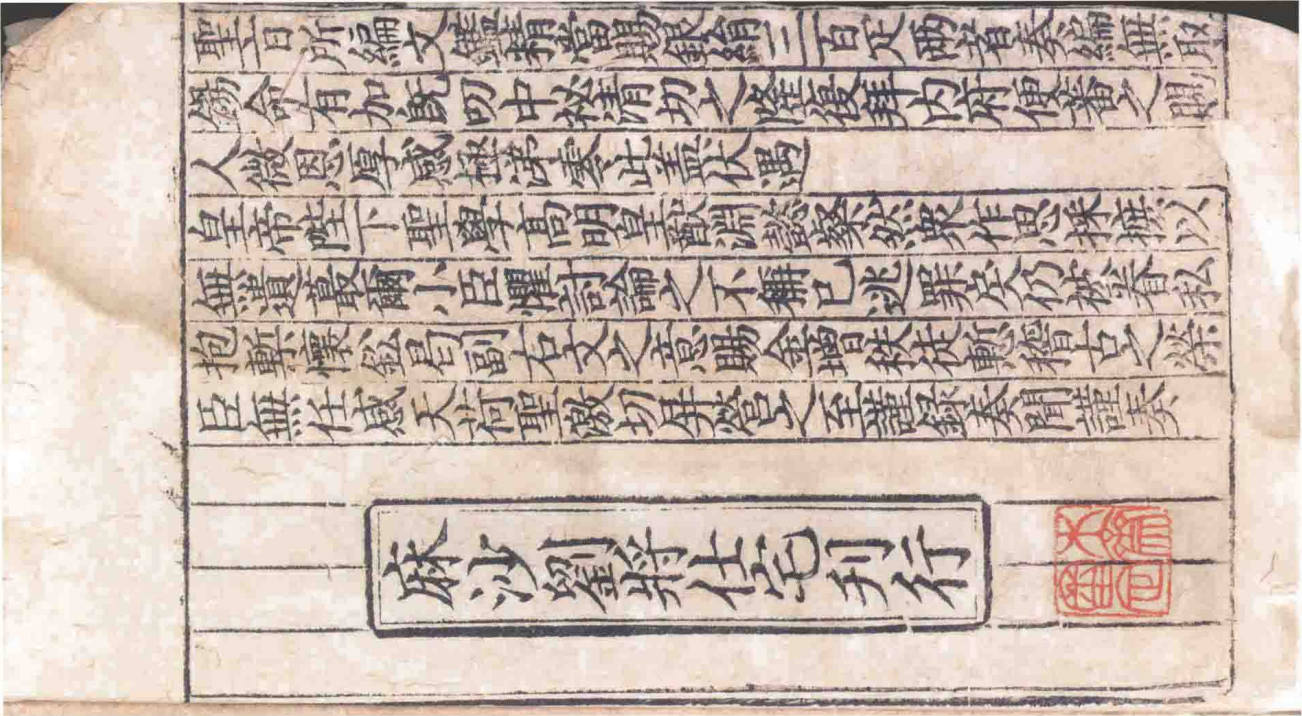 聖旨所編文鑑精當賜銀絹三百疋兩者奏編無取
錫命有加旣叨中祕清切之除復拜內府便蕃之賜
人微恩厚感極涕零此蓋伏遇
皇帝陛下聖學高明皇猷淵懿粲然衆作思採摭以
無遺蕞爾小臣懼討論之不觧已逃罪戾仍被眷私
抱槧懷鉛曷副右文之意賜金增秩徒慙稽古之榮
臣無任感天荷聖激切屏營之至謹錄奏聞謹奏
麻沙劉將仕宅刊行